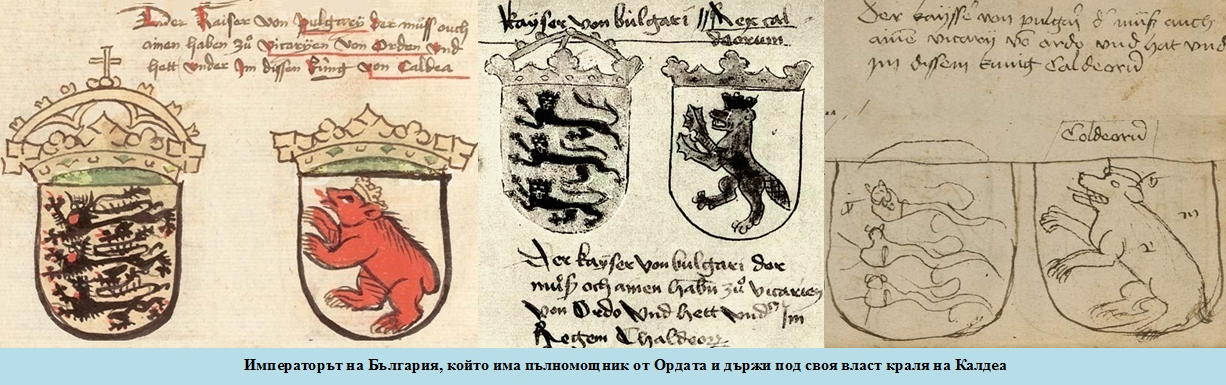 Der Kaiser von Pulgary der müß ouch
ainen haben zů vicaryen von Orden vnd
hett vnder Im dissen küng von Caldea
kayser von bulgari // Rex cal
deorum
Der kayser von bulgari der
můß och ainen habn zů vicarien
von Ordo vnd hett vnd Im
Regem Chaldeor
Der kaysser von pulgri d müß auch
ainē vicarii vō ordo vnd hat vnd
Im dissem kunig Caldeorū
Caldeorū
Императорът на България, който има пълномощник от Ордата и държи под своя власт краля на Калдеа